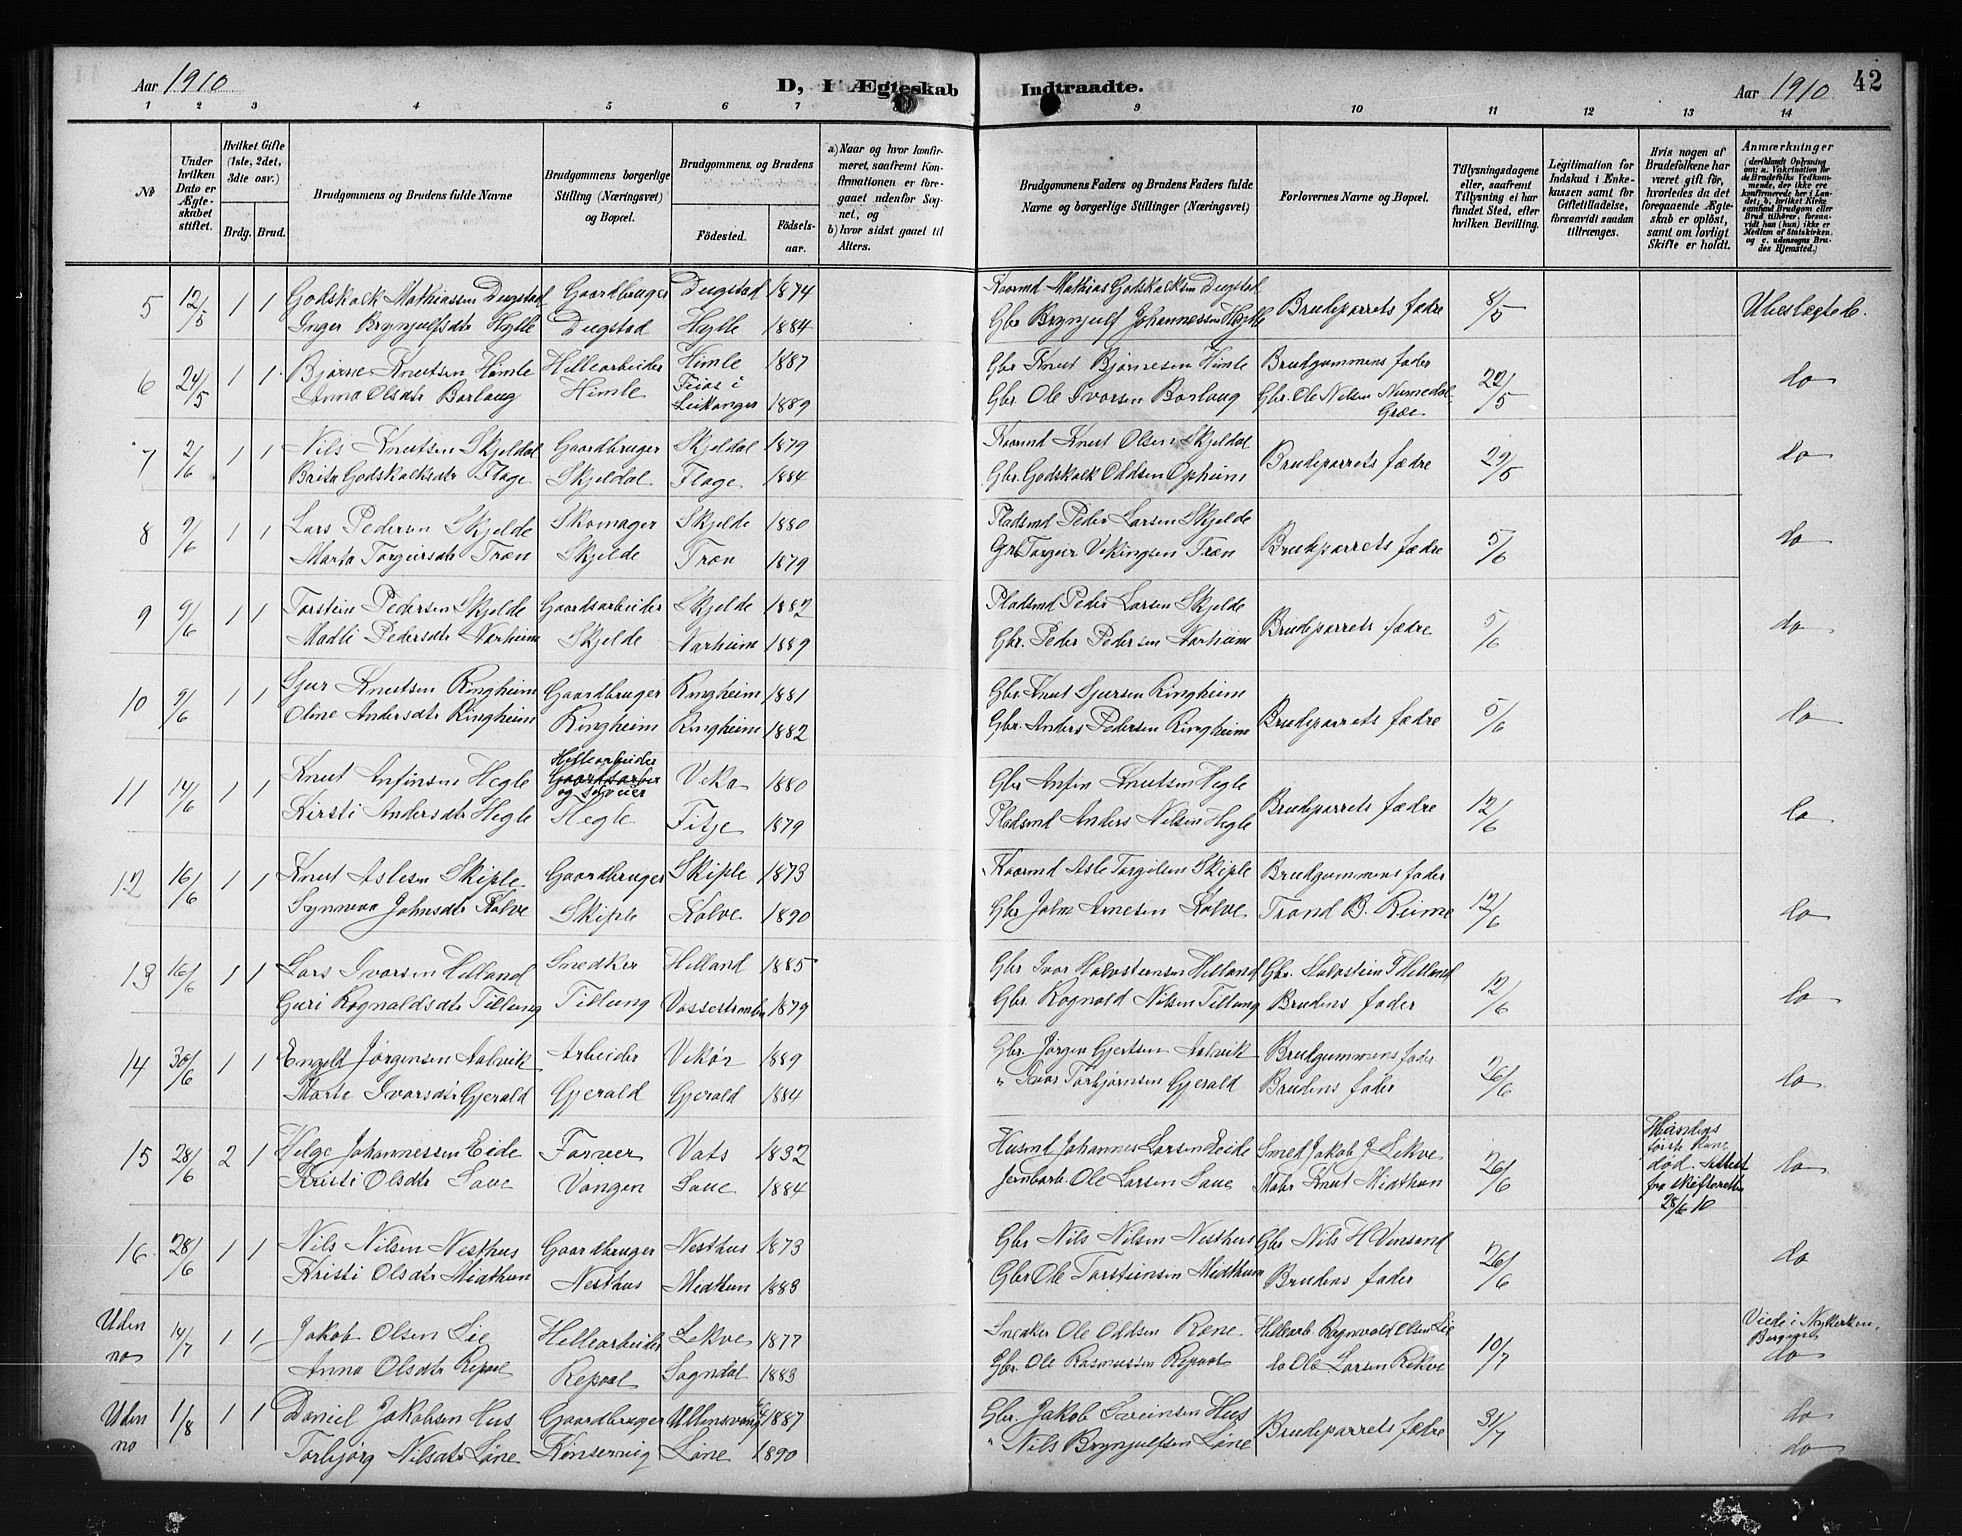 Aar 1910
D, I Ægteskab
Indtraadte.
Aar 1910
42
1 2 3 4 5 6 7 9 10 11 12 13 14
No
Under hvilken Dato er Ægteskabet stiftet.
Hvilket Gifte (1ste, 2det, 3die osv.)
Brdg. Brud.
Brudgommens og Brudens fulde Navne
Brudgommens borgerlige Stilling (Næringsvei) og Bopæl.
Brudgommens og Brudens
Fødested.
Fødselsaar.
a) Naar og hvor konfirmeret, saafremt Konfirmationen er foregaaet udenfor Sognet, og
b) hvor sidst gaaet til Alters.
Brudgommens Faders og Brudens Faders fulde Navne og borgerlige Stillinger (Næringsvei)
Forlovernes Navne og Bopæl.
Tillysningsdagene eller, saafremt Tillysning ei har fundet Sted, efter hvilken Bevilling.
Legitimation for Indskud i Enkekassen samt for Giftetilladelse, forsaavidt saadan tiltrænges.
Hvis nogen af Brudefolkene har været gift før, hvorledes da det foregaaende Ægteskab er opløst, samt om lovligt Skifte er holdt.
Anmærkninger
5 12/5 1 1 Godskalk Mathiassen Dugstad Gaardbruger Dugstad 1874 Kaarmd Mathias Godskalksen Dugstad Brudeparrets fædre 8/5 Ubeslægtede.
Inger Brynjulfsdtr Hylle Dugstad Hylle 1884 Gbr Brynjulf Johannessen Hylle
6 24/5 1 1 Bjørne Knutsen Himle Hellearbeider Himle 1887 Gbr Knut Bjørnesen Himle Brudgummens fader 22/5 do
Anna Olsdtr Borlaug Himle Feios i Leikanger 1889 Gbr. Ole Ivorsen Borlaug Gbr. Ole Nilsen Numedal Græe
7 2/6 1 1 Nils Knutsen Skjeldal Gaardbruger Skjeldal 1879 Kaarmd Knut Olsen Skjeldal Brudeparrets fædre 29/5 do
Brita Godskalksdtr Flage Skjeldal Flage 1884 Gbr. Godskalk Oddsen Opheim
8 9/6 1 1 Lars Pedersen Skjelde Skomager Skjelde 1880 Pladsmd Peder Larsen Skjelde Brudeparrets fædre 5/6 do
Marta Torgiersdtr Træn Skjelde Træn 1879 Gbr Torgier Vikingsen Træn
9 9/6 1 1 Torstein Pedersen Skjelde Gaardsarbeider Skjelde 1882 Pladsmd Peder Larsen Skjelde Brudeparrets fædre 5/6 do
Madli Pedersdtr Narheim Skjelde Narheim 1889 Gbr. Peder Pedersen Narheim
10 9/6 1 1 Sjur Knutsen Ringheim Gaardbruger Ringheim 1881 Gbr Knut Sjursen Ringheim Brudeparrets fædre 5/6 do
Oline Andersdtr Ringheim Ringheim Ringheim 1882 Gbr. Anders Pedersen Ringheim
11 14/6 1 1 Knut Anfinsen Hegle Hellearbeider Veka 1880 Gbr Anfin Knutsen Hegle Brudeparrets fædre 12/6 do
Kirsti Andersdtr Hegle Hegle Fitje 1879 Pladsmd Anders Nilsen Hegle
12 16/6 1 1 Knut Aslesen Skiple Gaardbruger Skiple 1873 Kaarmd Asle Torgilsen Skiple Brudgummens fader 12/6 do
Synneva Johnsdtr Kolve Skiple Kolve 1890 Gbr John Arnesen Kolve Trond B. Reime
13 16/6 1 1 Lars Ivarsen Helland Snedker Helland 1885 Gbr Ivar Halvsteinsen Helland Gbr. Halvstein I Helland 12/6 do
Guri Rognaldsdtr Tillung Tillung Vossestranden 1879 Gbr. Rognald Nilsen Tillung Brudens fader
14 30/6 1 1 Engeld Jørgensen Aalvik Arbeider Vikør 1889 Gbr. Jørgen Gjertsen Aalvik Brudgummens fader 26/6 do
Marta Ivarsdtr Gjerald Gjerald Gjerald 1884 " Ivar Torbjørnsen Gjerald Brudens fader
15 28/6 2 1 Helge Johannessen Eide Farver Vats 1832 Husmd Johannes Larsen Eide Smed Jakob J Lekve 26/6 Mandens første Kone død. Attest fra skifteretten 28/6 10 do
Kristi Olsdtr Saue Vangen Saue 1884 Jernbarb. Ole Larsen Saue Knut Midthun
16. 28/6 1 1 Nils Nilsen Nesthus Gaardbruger Nesthus 1873 Gbr Nils Nilsen Nesthus Gbr Nils H Vinsand 26/6 do
Kristi Olsdtr Midthun Nesthus Midthun 1883 Gbr Ole Torsteinsen Midthun Brudens fader
Uden no 14/7 1 1 Jakob Olsen Lie Hellearbeider Lekve 1877 Snedker Ole Oddsen Rene Hellearb Rognvald Olsen Lie 10/7 Viede i Nykirken, Bergen
Anna Olsdtr Repaal Repaal Sogndal 1883 Gbr. Ole Rasmussen Repaal do Ole Larsen Rekve do
Uden no 1/8 1 1 Daniel Jakobsen Hus Gaardbruger Ullensvang 1887 Gbr. Jakob Hus Brudeparrets fædre 31/7 do
Torbjørg Nilsdtr Løne Kinservig Løne 1890 " Nils Brynjulfsen Løne do